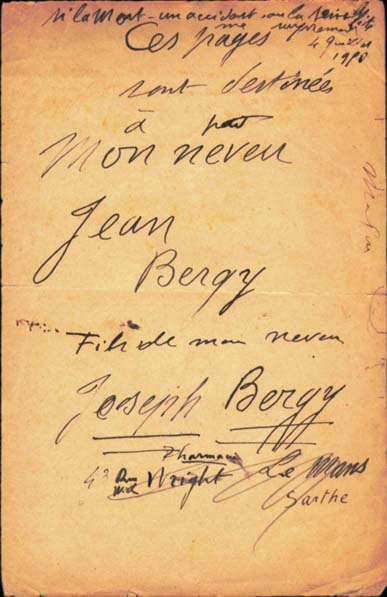 si la mort - un accident ou la
Ces pages
4 Juillet
1950
sont destinées
à
Mon neveu
Jean
Bergy
Fils de mon neveu
Joseph Bergy
Pharmacie
43 Rue Wright Le Mans
Sarthe